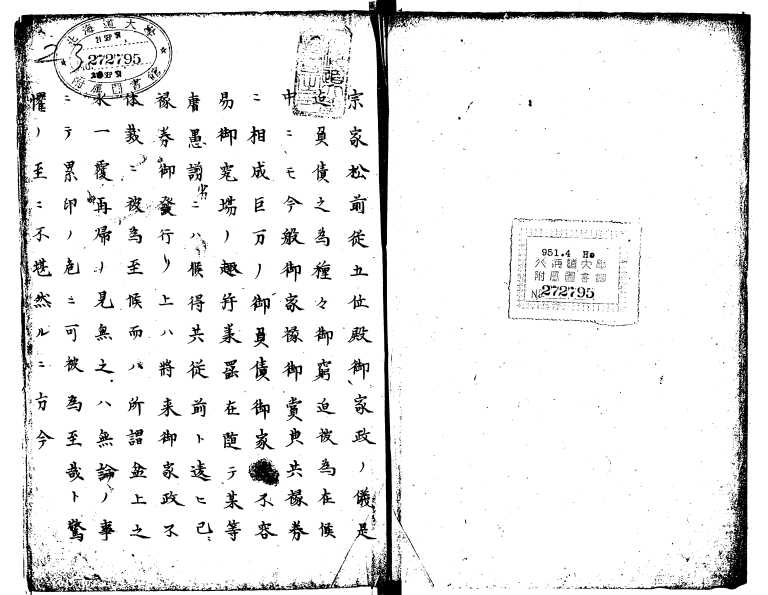 951.4 Ho
附属図書館
No 272795
宗家松前従五位殿御家政ノ儀是
迄負債之為種々御窮迫被為在候
中ニモ今般御家禄御賞典共禄券
ニ相成巨万ノ御負債御家 不容
易御究場ノ趣 承 罷在随テ某等
庸愚 ニハ候得共従前ト違ヒ已
禄券御発行ノ上ハ将来御家政不
体裁ニ被為至候而ハ所謂盆上之
水一覆再帰ノ見無之ハ無論ノ事
ニテ累卵ノ危ニ可被為至哉ト驚
懼ノ至ニ不堪然ルニ方今
北海道大學
272795
附属図書館